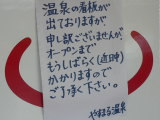 温泉の看板が
出ておりますが
申し訳ございませんが、
オープンまで
もうしばらく(近時)
かかりますので
ご了承下さい。
やまるる温泉